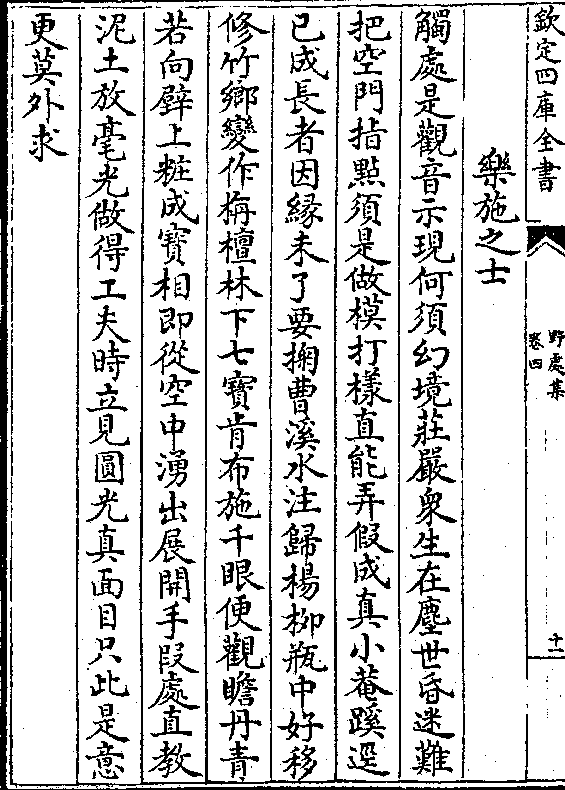 欽定四庫全書
野處集
卷四
十一
樂施之士
觸處是觀音示現何須幻境莊嚴衆生在塵世昏迷難
把空門指點須是做模打樣直能弄假成真小菴蹊逕
已成長者因縁未了要掬曹溪水注歸楊栁瓶中好移
修竹鄉變作栴檀林下七寶肯布施千眼便觀瞻丹青
若向壁上粧成寳相即從空中湧出展開手段處直教
泥土放毫光做得工夫時立見圓光真面目只此是意
更莫外求